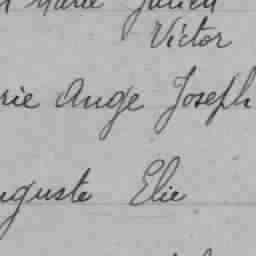 Marie Julien
Victor
rie Ange Joseph
uguste Elie